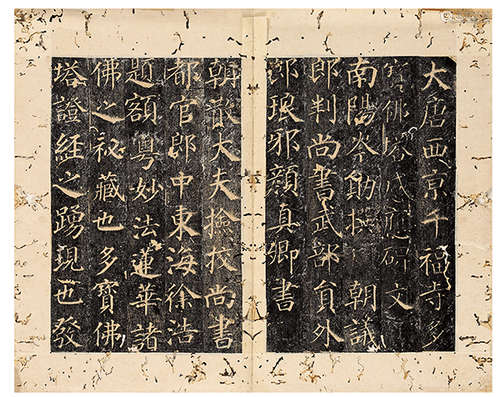 大唐西京千福寺多
寳佛塔感應碑文
南陽岑勛撰　朝議
郎判尚書武部負外
郎琅邪顏真卿書
朝散大夫撿挍尚書
都官郎中東海徐浩
題額粵妙法蓮華諸
佛之祕藏也多寶佛
塔證經之踴現也發